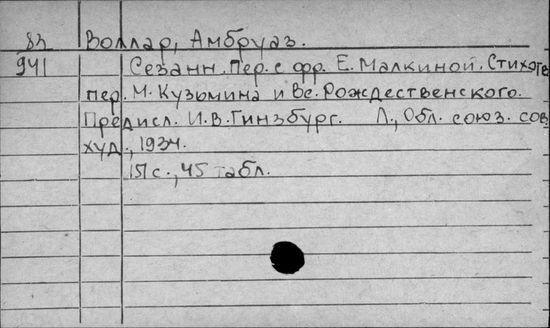 83 Воллар, Амбруаз.
941 Сезанн. Пер. с фр. Е. Малкиной. Стихотв.
пер. М. Кузьмина и Вс. Рождественского.
Предисл. И.В. Гинзбург. Л., Обл. союз. сов.
худ., 1934.
151 с., 45 табл.